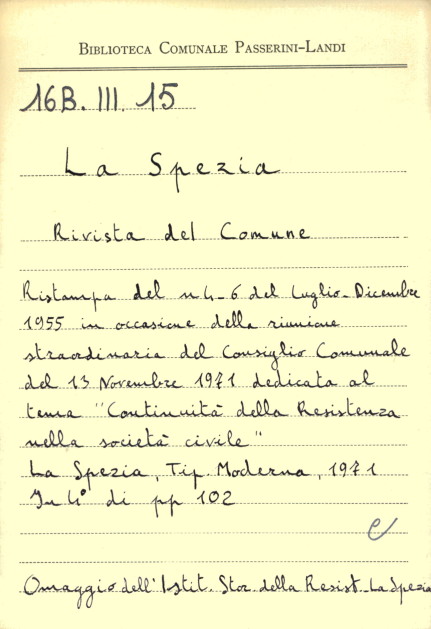 BIBLIOTECA COMUNALE PASSERINI-LANDI
16B. III. 15
La Spezia
Rivista del Comune
Ristampa del n 4-6 del Luglio-Dicembre
1955 in occasione della riunione
straordinaria del Consiglio Comunale
del 13 Novembre 1971 dedicata al
tema "Continuità della Resistenza
nella società civile"
La Spezia, Tip. Moderna, 1971
In 4° di pp 102
e
Omaggio dell'Istit. Stor. della Resist. La Spezia